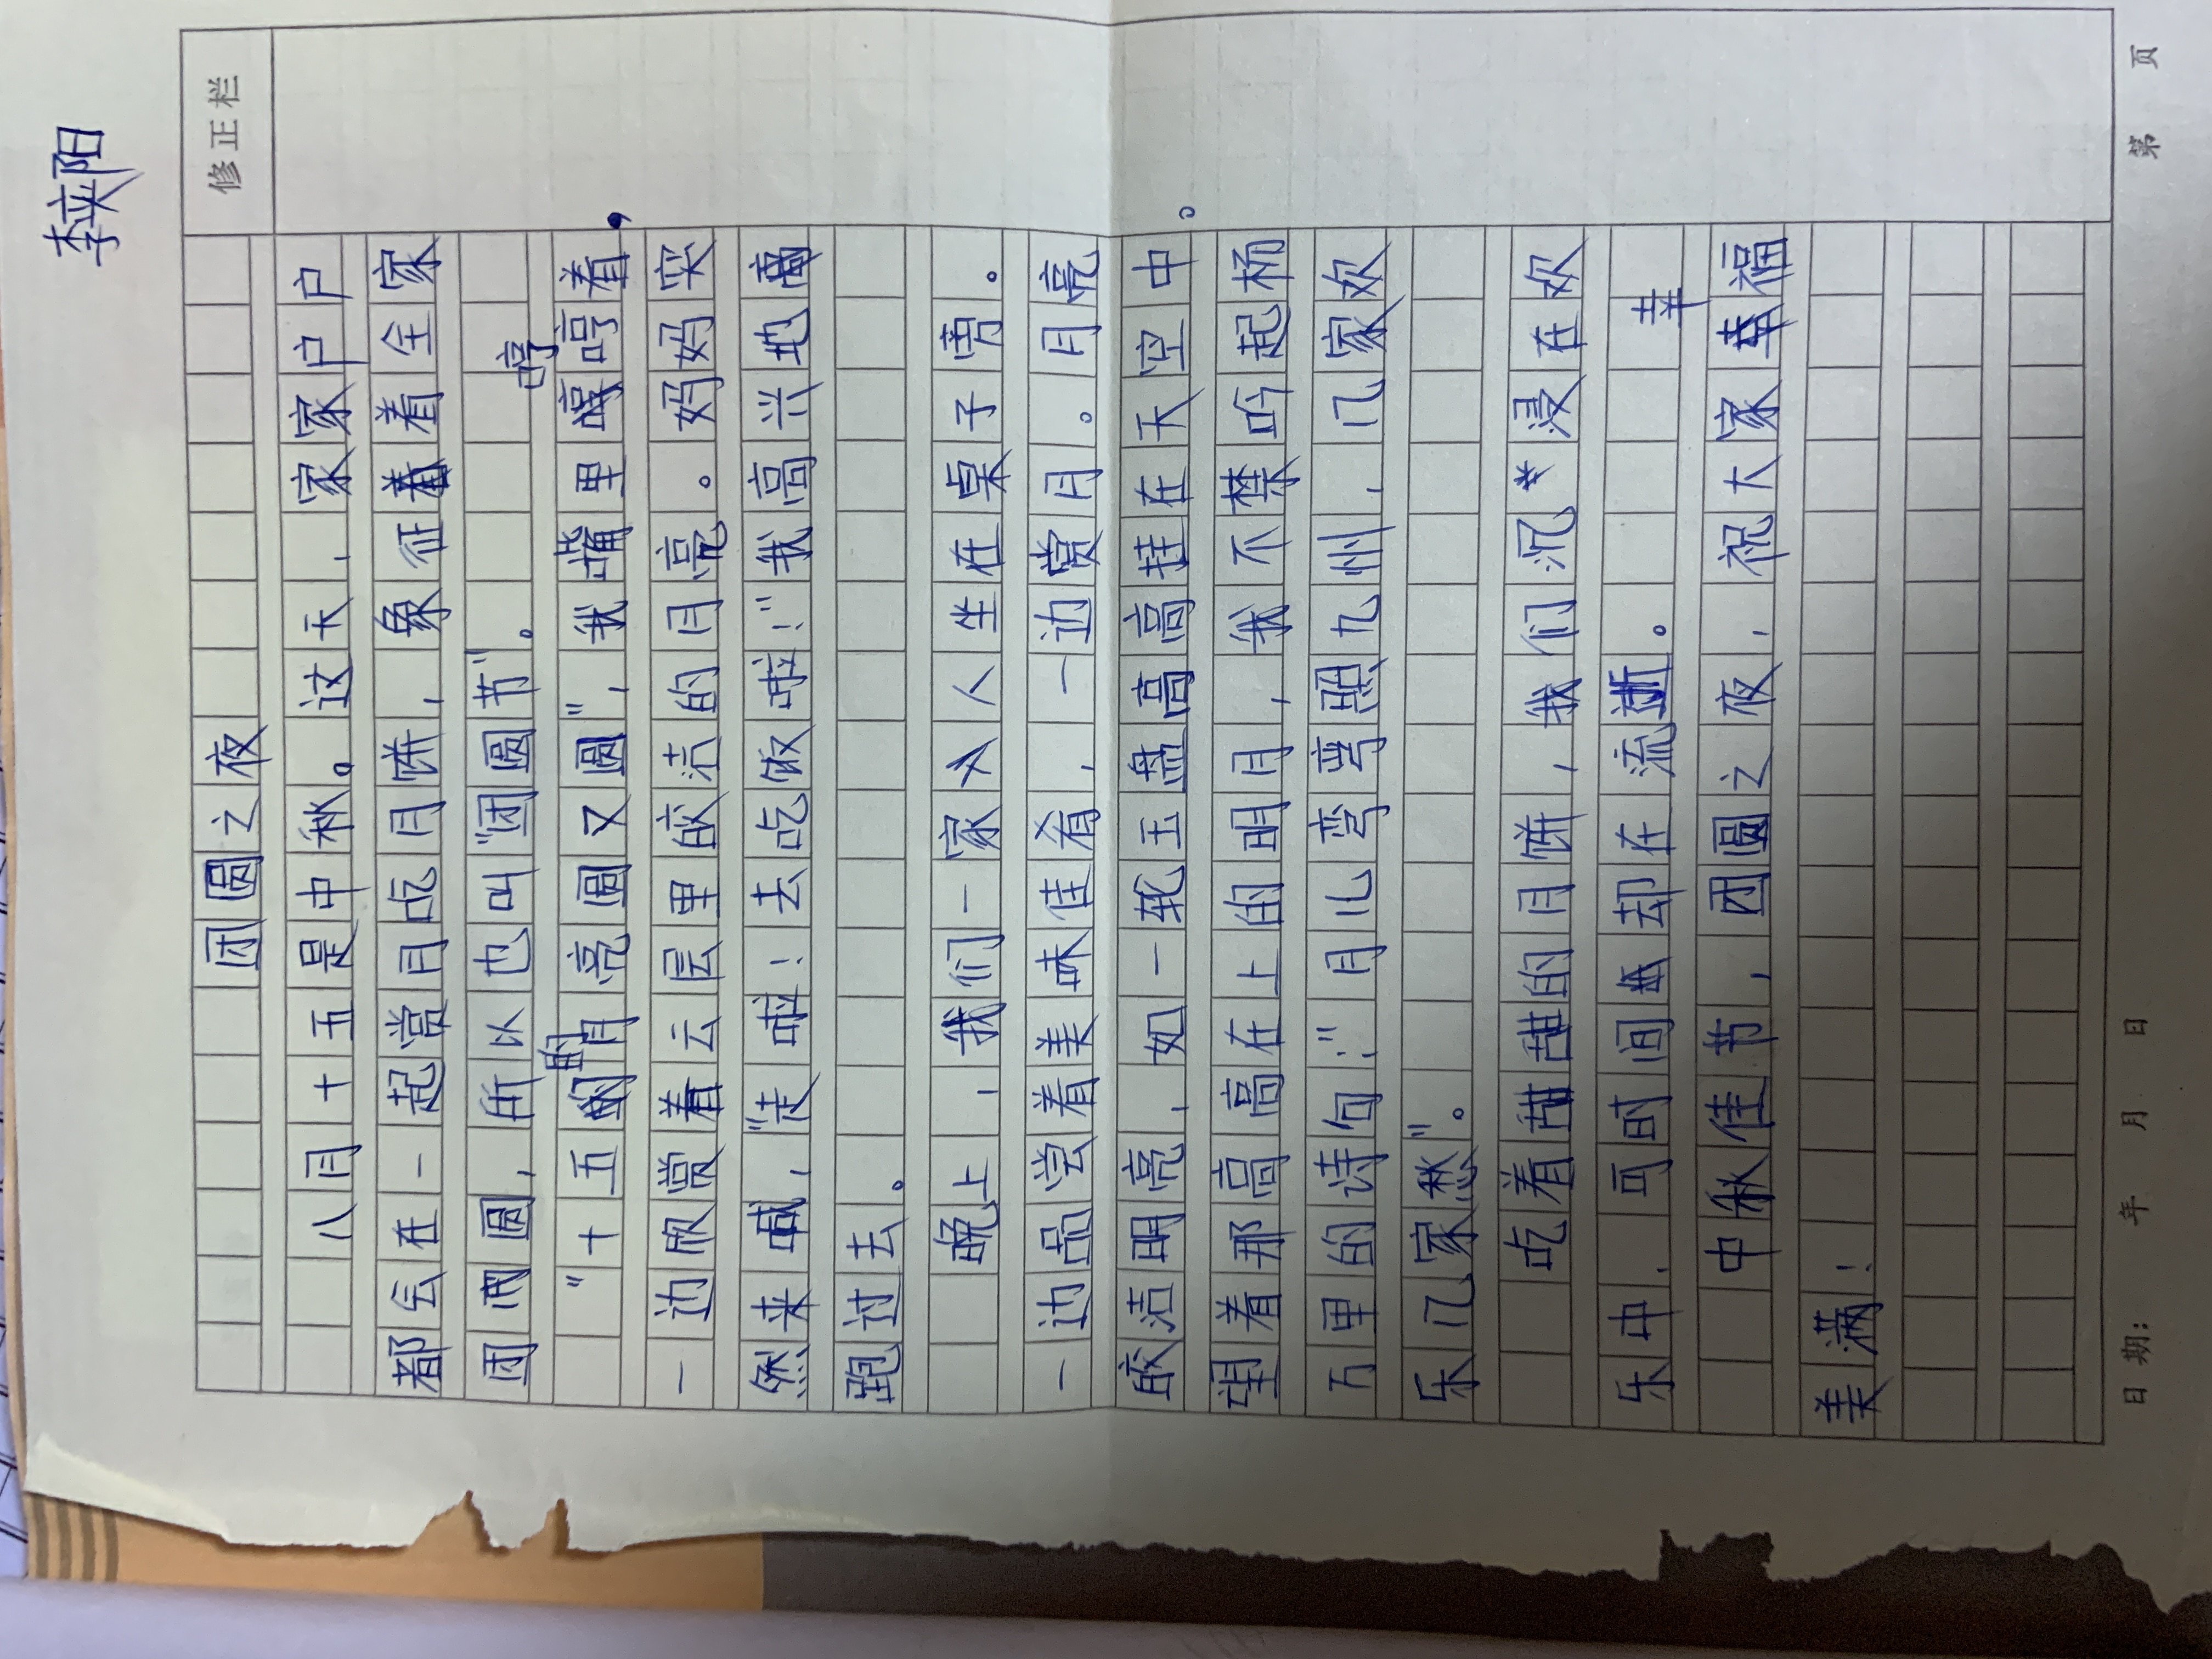 李奕阳
修正栏
团圆之夜
八月十五是中秋。这天，家家户户
都会在一起赏月吃月饼，象征着全家
团团圆圆，所以也叫“团圆节”。
“十五的月亮圆又圆”，我嘴里哼哼着，
一边欣赏着云层里皎洁的月亮。妈妈突
然来喊，“走啦！去吃饭啦！”我高兴地
跑过去。
晚上，我们一家人坐在桌子旁。
一边品尝着美味佳肴，一边赏月。月亮
皎洁明亮，如一轮玉盘高高挂在天空中。
望着那高高在上的明月，我不禁吟起杨
万里的诗句：“月儿弯弯照九州，几家欢
乐几家愁”。
吃着甜甜的月饼，我们沉浸在欢
乐中，可时间却在流逝。
中秋佳节，团圆之夜，祝大家幸福
美满！
日期：年月日 第页